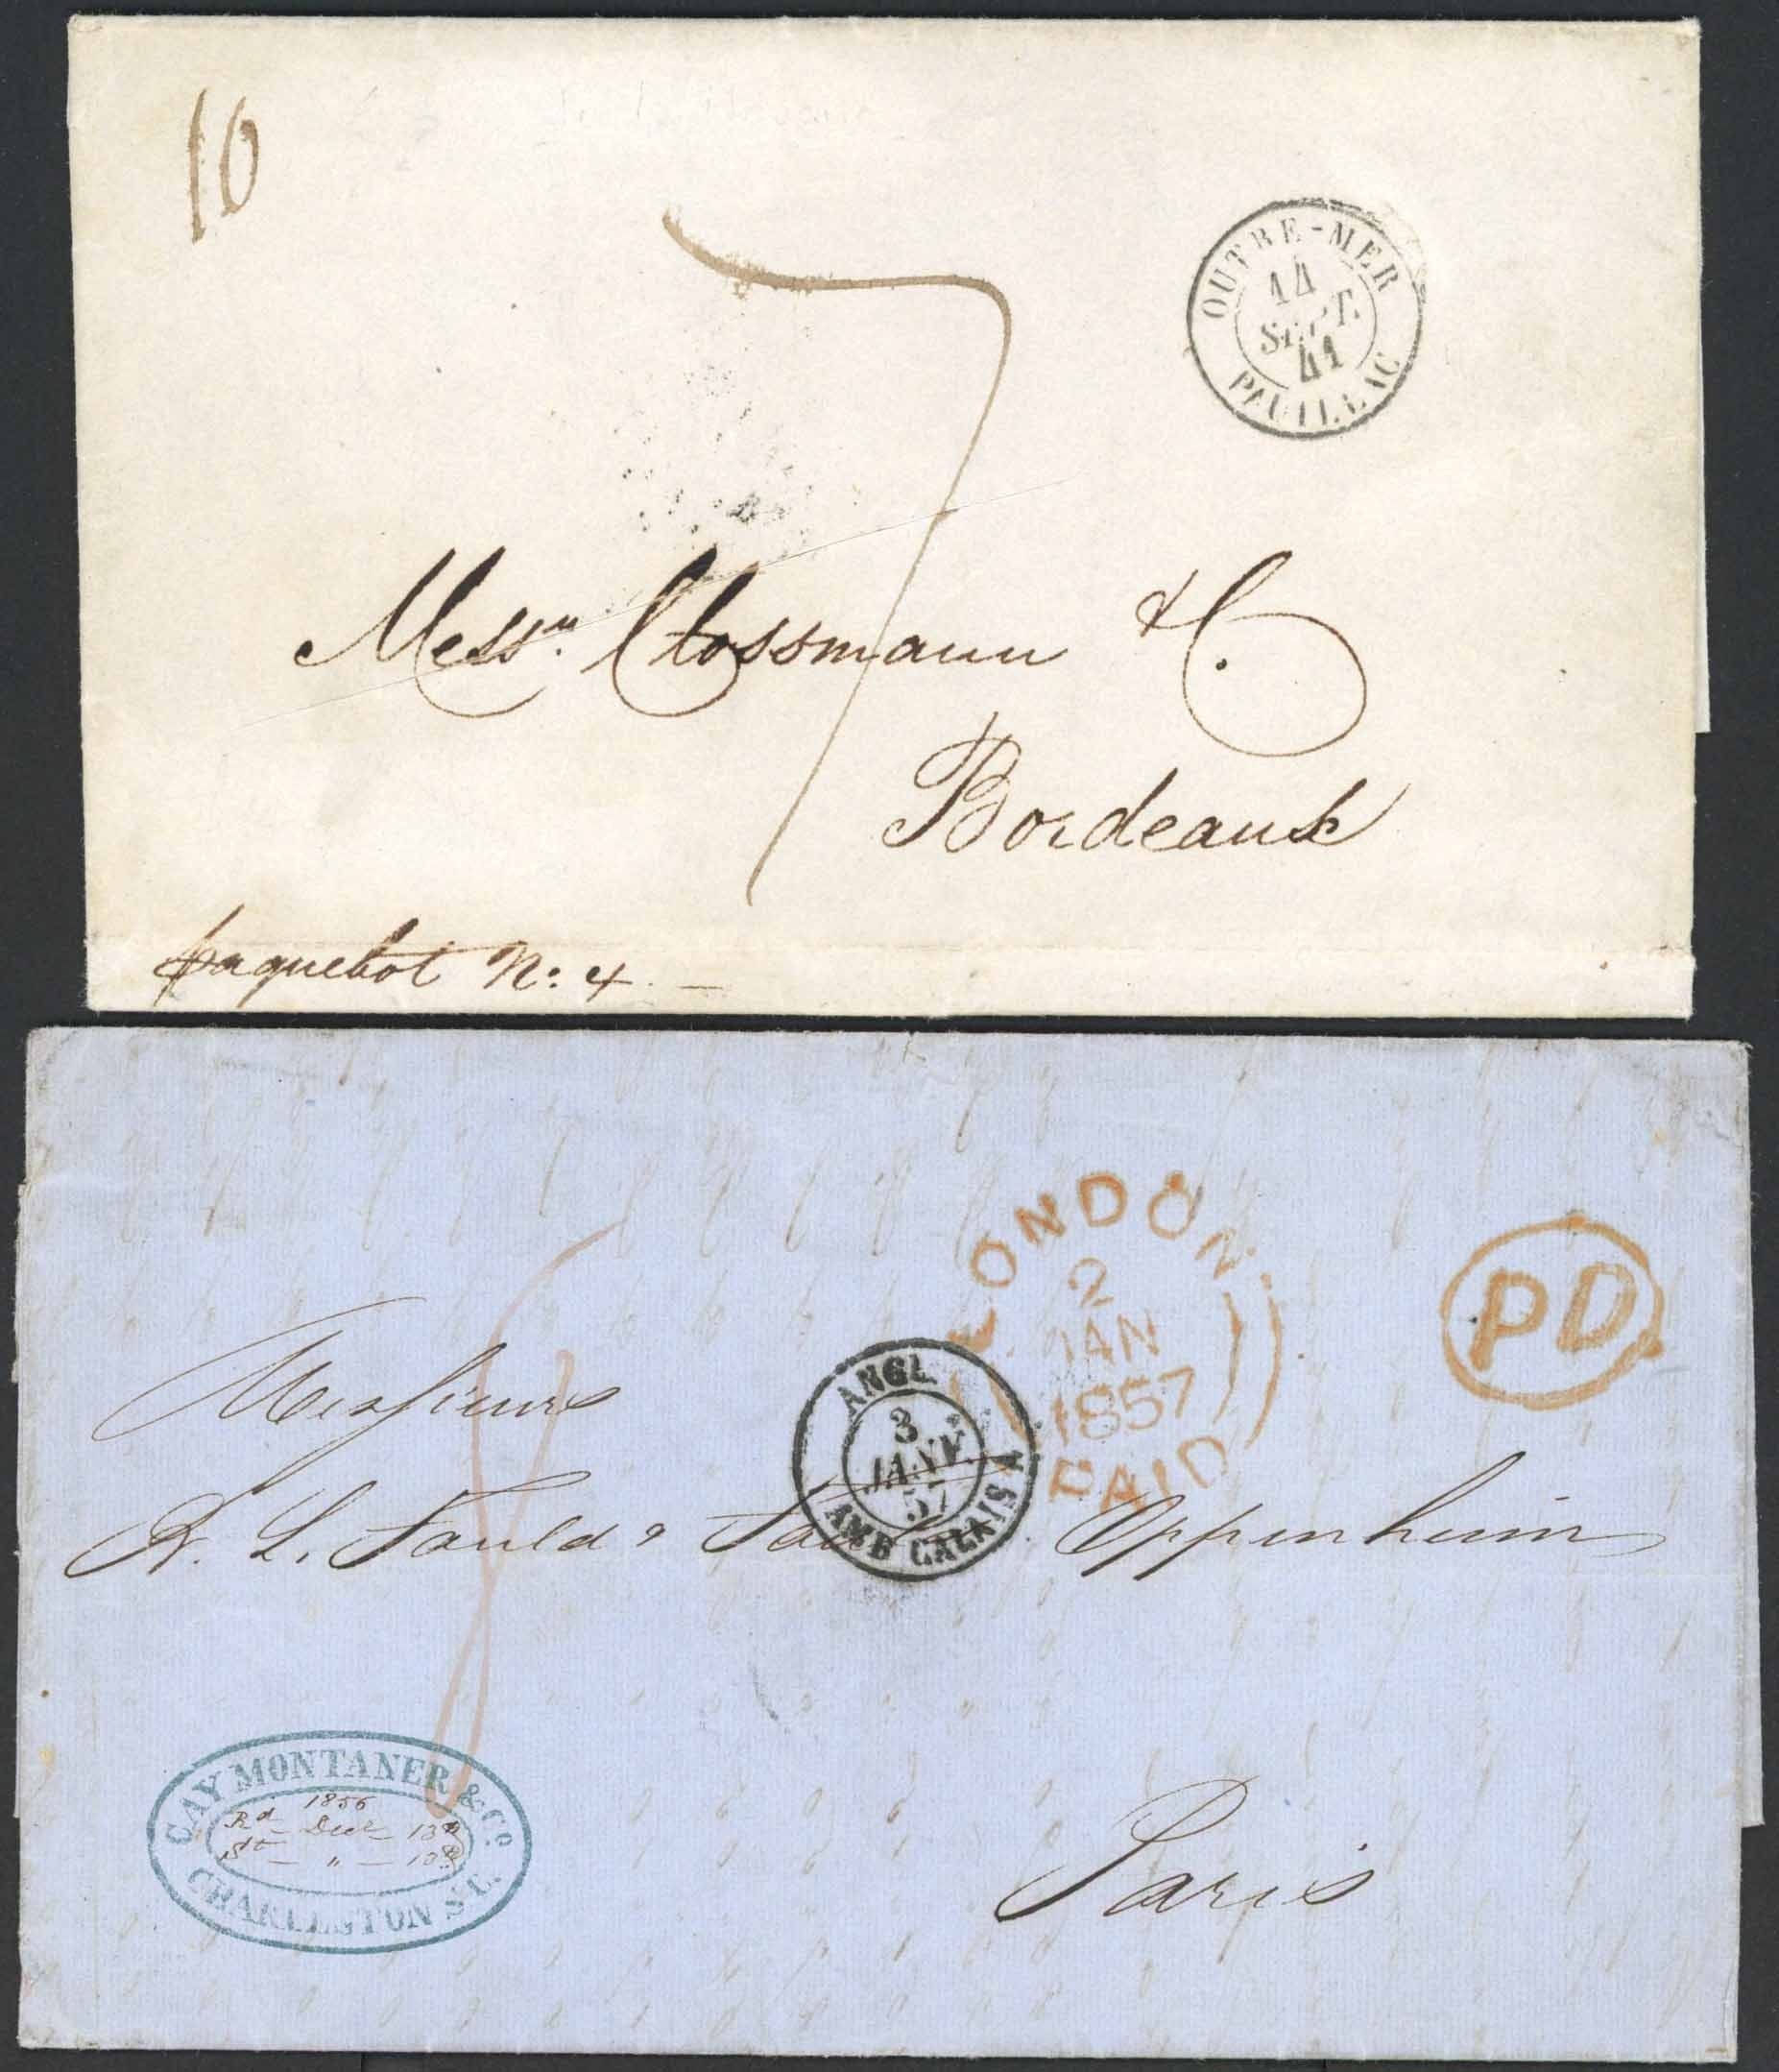 10
7
OUTRE-MER
14
SEPT.
41
PAUILLAC
Messrs. Clossmann & C.
Bordeaux
paquebot No: 4. —
LONDON
2
JAN
1857
PAID
PD
ANGL.
3
JANV.
57
AMB CALAIS A
Messieurs
B. L. Fould & Fould Oppenheim
Paris
GAY MONTANER & Co.
1856
Rd — Decr — 13th
St — " — 10th
CHARLESTON S.C.